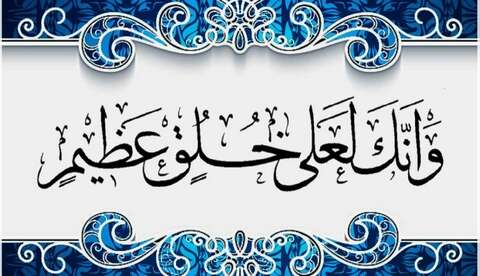 وَإِنَّكَ لَعَلَى خُلُقٍ عَظِيمٍ